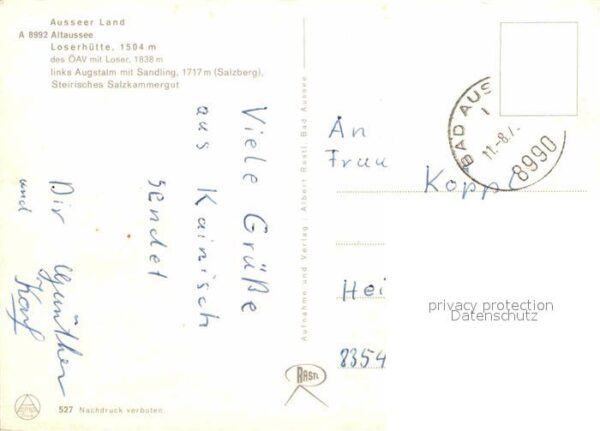 Ausseer Land
A 8992 Altaussee
Loserhütte, 1504 m
des ÖAV mit Loser, 1838 m
links Augstalm mit Sandling, 1717 m (Salzberg),
Steirisches Salzkammergut
Viele Grüße
aus Kainisch
sendet
Dir Günther
und
Karl
Aufnahme und Verlag: Albert Rastl, Bad Aussee
BAD AUS
11.-8.7
8990
An
Frau
Koppe
Hei
privacy protection
Datenschutz
8354
RASTL
527 Nachdruck verboten.